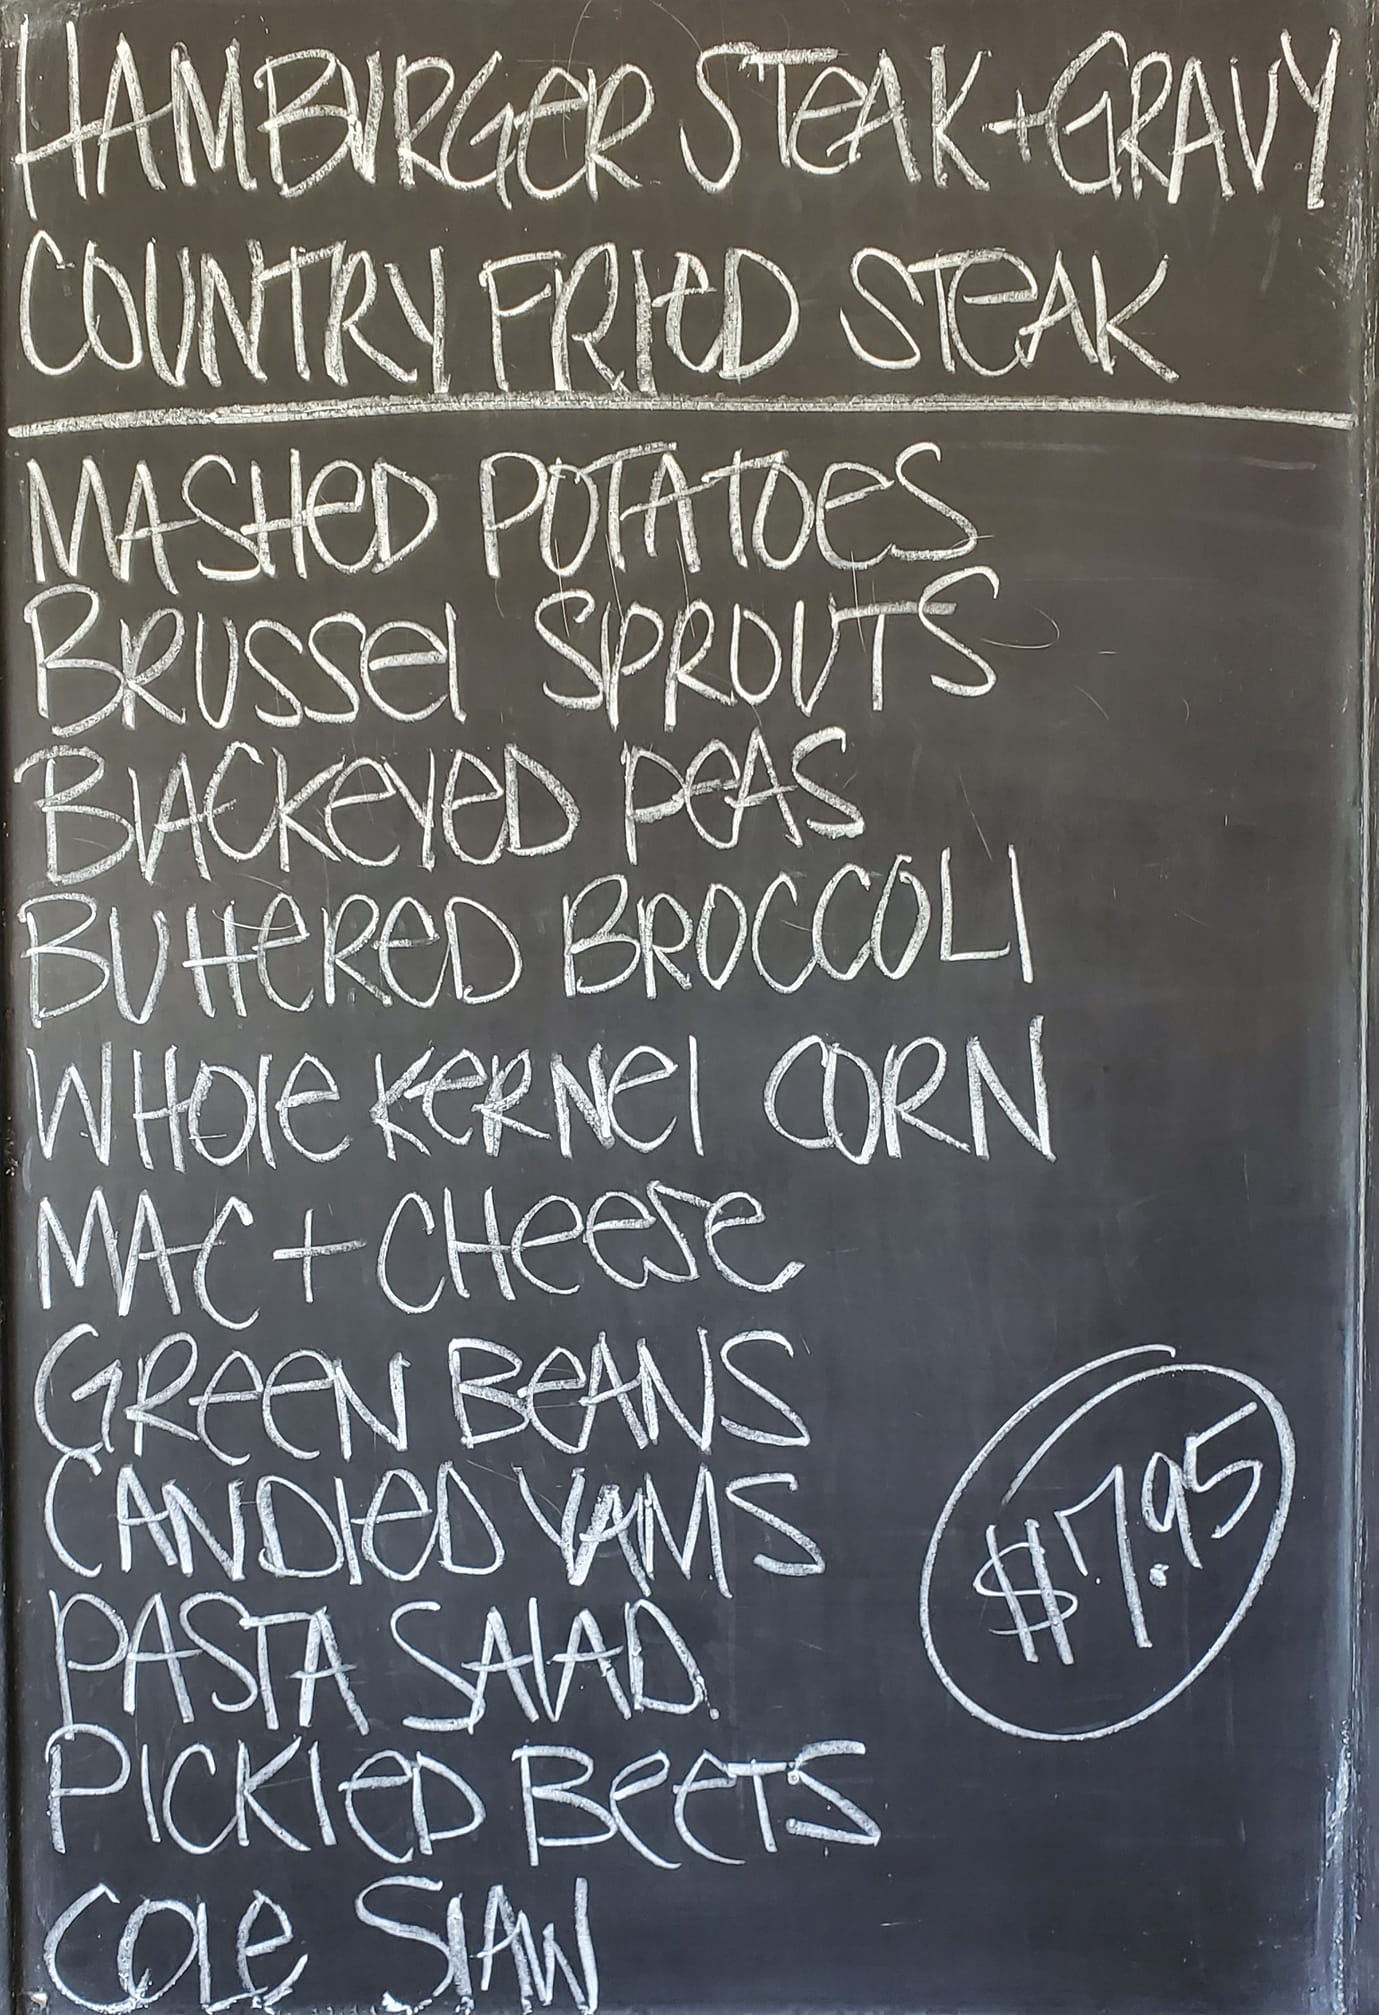 HAMBURGER STEAK + GRAVY
COUNTRY FRIED STEAK
MASHED POTATOES
BRUSSEL SPROUTS
BLACKEYED PEAS
BUTTERED BROCCOLI
WHOLE KERNEL CORN
MAC + CHEESE
GREEN BEANS
CANDIED YAMS
PASTA SALAD
$7.95
PICKLED BEETS
COLE SLAW